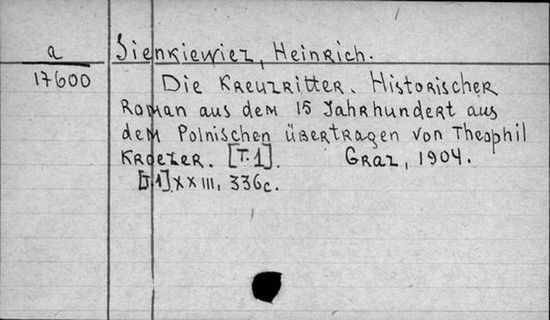 a Sienkiewicz, Heinrich.
17600 Die Kreuzritter. Historischer
Roman aus dem 15 Jahrhundert aus
dem Polnischen übertragen von Theophil
Kroezer. [T.1]. Graz, 1904.
[T.1] XXIII, 336c.